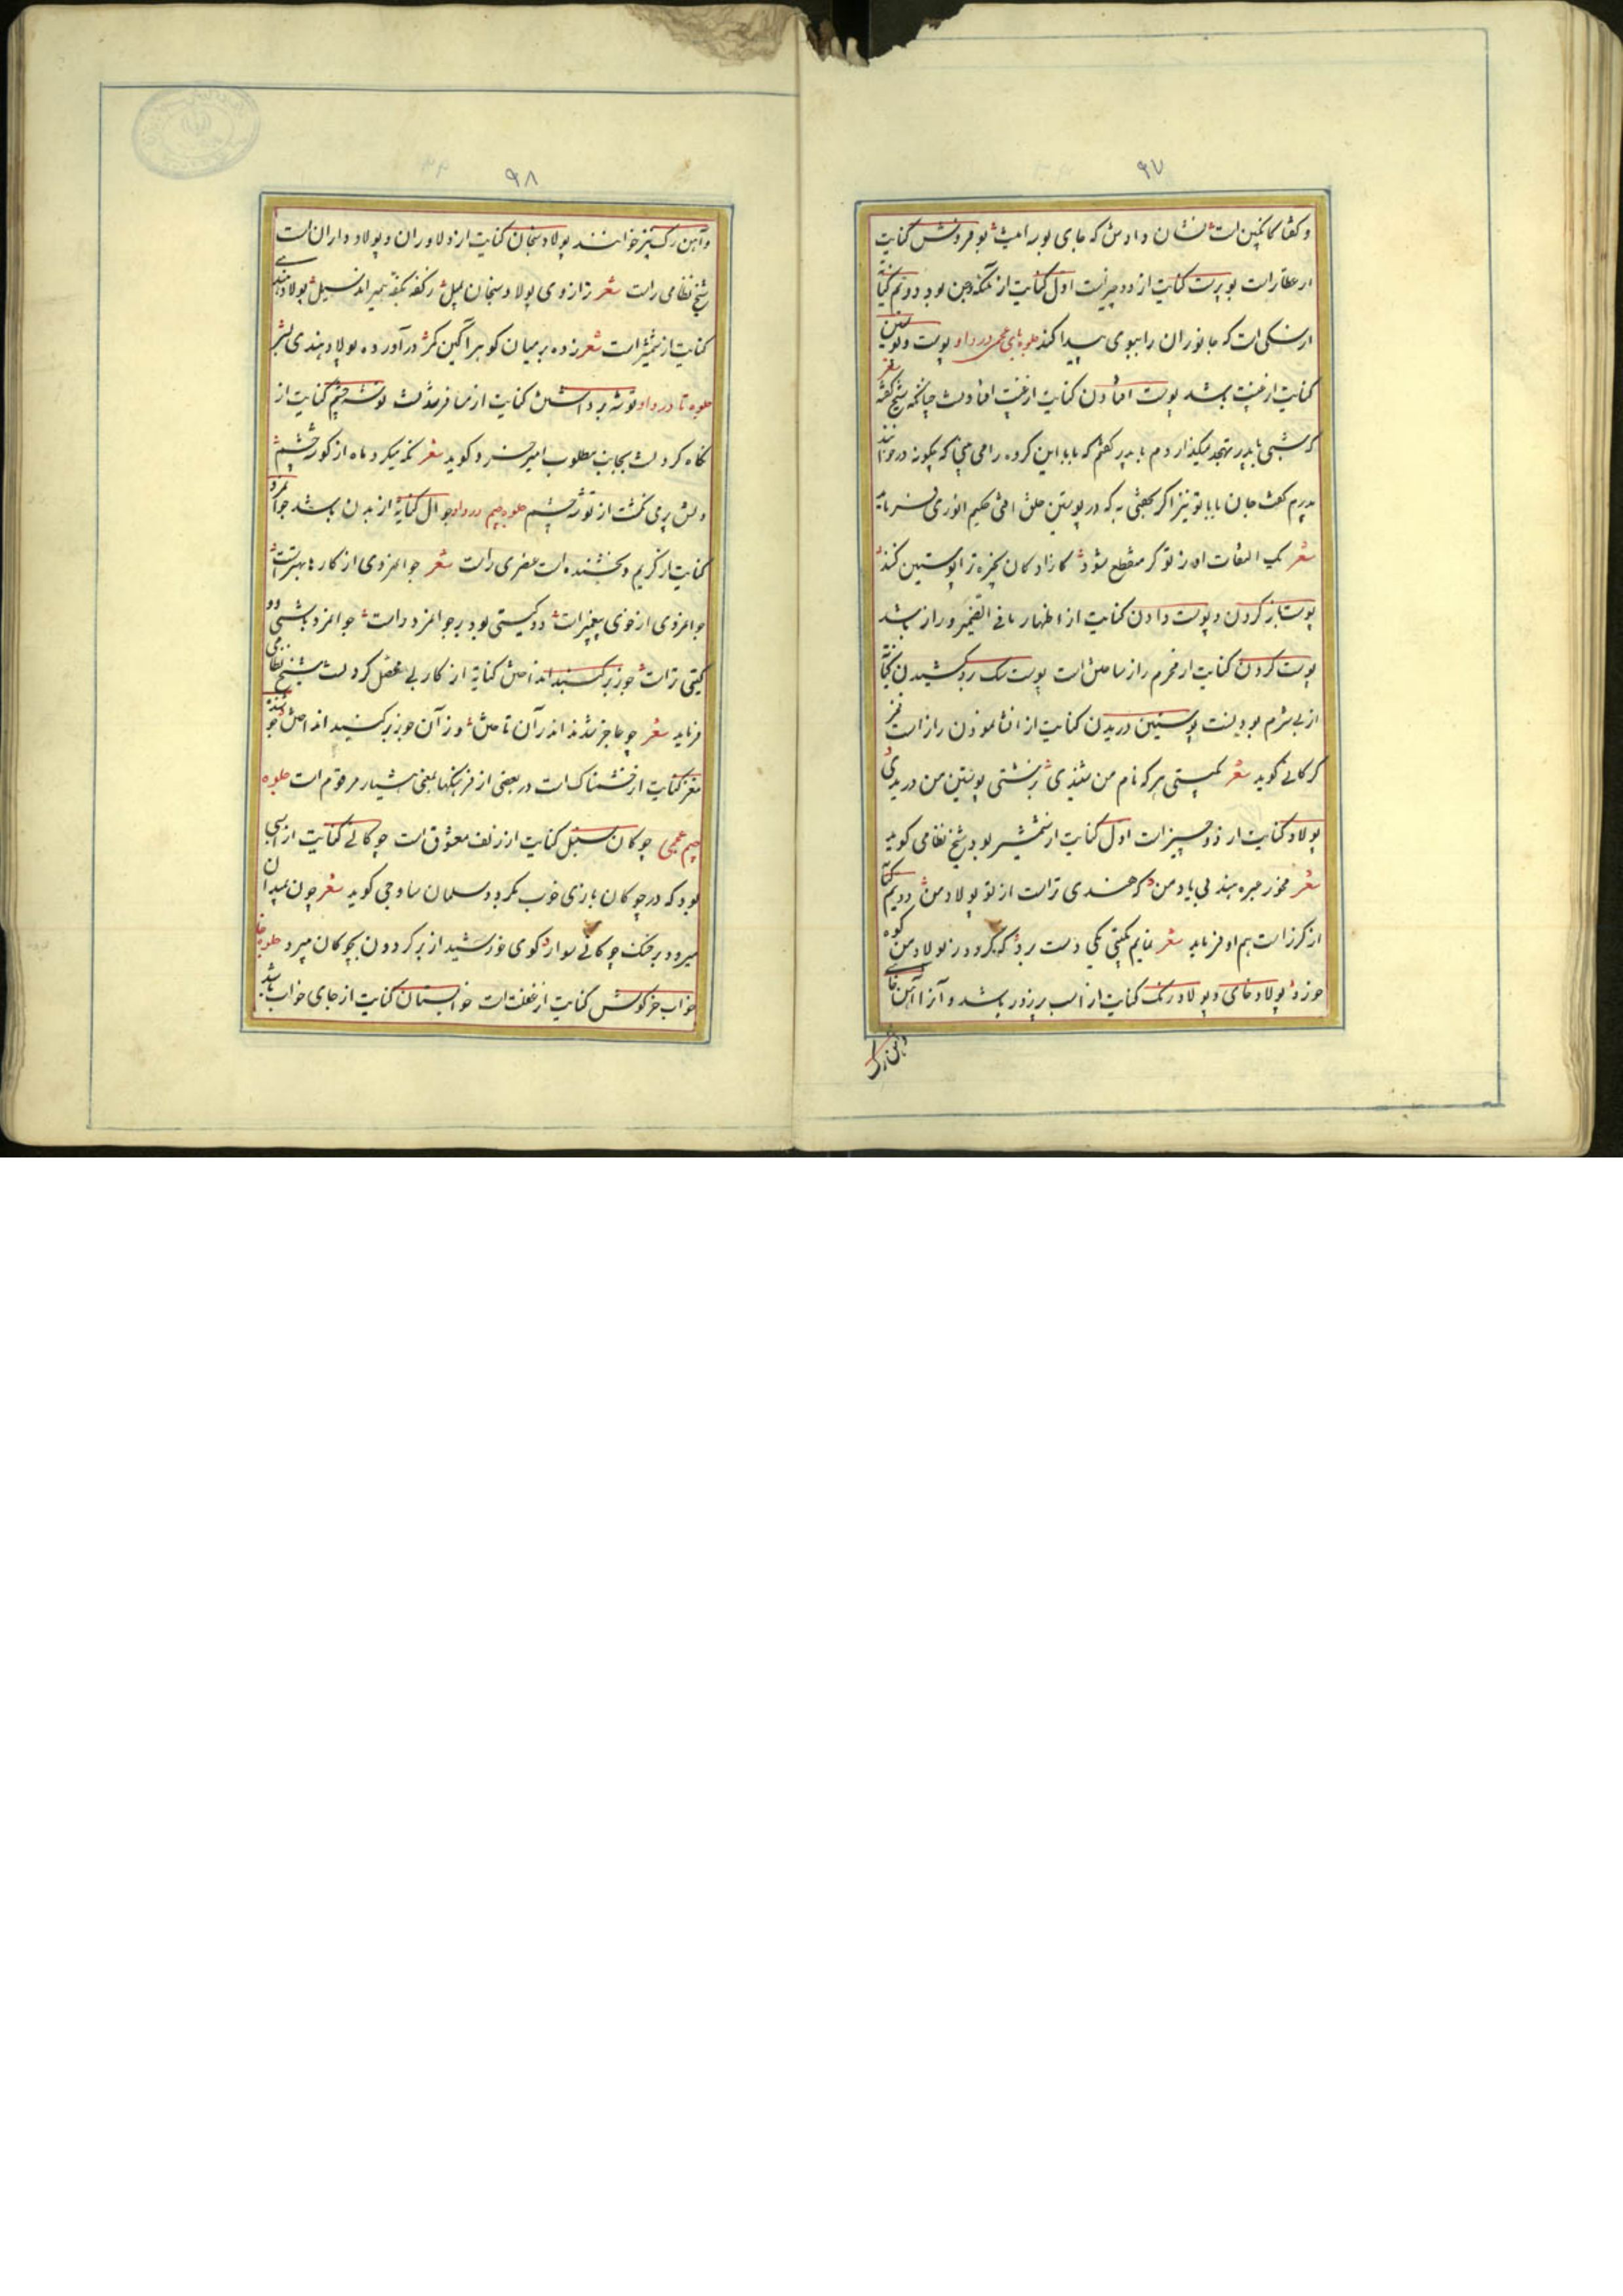 ۹۷
و گفتا کاینچنین است نشان دادمش که جای بو به امیث بو فروش کنایت
از عطار است بوپرست کنایت از دو چیز است اول کنایت از بود دویم کنایه
از سکی است که جانوران را ببوی پیدا کند جلوه بای عجمی در واو پوست و پوستین
کنایت از غیبت باشد پوست افتادن کنایت از غیبت افتادنست چنانکه شیخ گفته
که شبی با پدر تهجد میگذاردم با پدر گفتم که بابا این گروه را می بینی که چگونه در خوابند
پدرم گفت جان بابا تو نیز اگر بخفتی به که در پوستین خلق افتی حکیم انوری فرماید
شعر یک التفات او ز تو گر منقطع شود کازادگان بخیره ترا پوستین کنند
پوست باز کردن و پوست دادن کنایت از اظهار ما فی الضمیر و راز باشد
پوست کردن کنایت از محرم راز ساختن است پوست سک بر رو کشیدن کنایه
از بی شرم بودنست پوستین دریدن کنایت از افشا نمودن راز است فخر
کرکانی گوید شعر بگیتی هر که نام من شنیدی بزشتی پوستین من دریدی
پولاد کنایت از دو چیز است اول کنایت از شمشیر بود شیخ نظامی گوید
شعر مخور خیره بند بی یاد من که هندی تر است از تو پولاد من دویم کنایه
از گرز است هم او فرماید شعر نمایم بگیتی یکی دست برد که گردد ز پولاد من کوه
خورد پولاد خای و پولاد رک کنایت از اسب پر زور باشد و آنرا آهن خای
و آهن رک
۹۸
و آهن رک نیز خوانند پولاد سنجان کنایت از دلاوران و پولاد داران است
شیخ نظامی راست شعر ترازوی پولاد سنجان بمیل ز کفه بکفه همیراند سیل پولاد هندی
کنایت از شمشیر است شعر زده بر میان گوهر آگین کمر در آورده پولاد هندی بسر
جلوه تا در واو توشه برداشتن کنایت از مسافر شدنست توشه چشم کنایت از
نگاه کردنست بجانب مطلوب امیر خسرو گوید شعر نگه میکرد ماه از گوشه چشم
دلش پر می نگشت از توشه چشم جلوه جیم در واو جوال کنایة از بدن باشد جوانمرد
کنایت از کریم و بخشنده است عنصری راست شعر جوانمردی از کارها بهتر است
جوانمردی از خوی پیغمبر است دو گیتی بود بر جوانمرد راست جوانمرد باش و دو
گیتی تراست جوز بر گنبد انداختن کنایة از کار بی عقل کردنست شیخ نظامی
فرماید شعر چو عاجز شدند اندر آن تاختن وز آن جوز بر گنبد انداختن جو
مغز کنایت از خشمناک است در بعضی از فرهنگها بمعنی هشیار مرقوم است جلوه
جیم عجمی چوگان سنبل کنایت از زلف معشوق است چوگانی کنایت از اسبی
بود که در چوگان بازی خوب بگردد سلمان ساوجی گوید شعر چون بمیدان
میرود بر خنک چوگانی سوار گوی خورشید از بر گردون بچوگان میبرد جلوه خا
خواب خرگوش کنایت از غفلت است خوابستان کنایت از جای خواب باشد